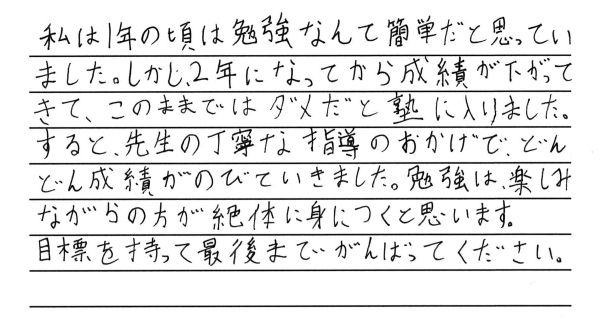 私は1年の頃は勉強なんて簡単だと思ってい
ました。しかし、2年になってから成績が下がって
きて、このままではダメだと塾に入りました。
すると、先生の丁寧な指導のおかげで、どん
どん成績がのびていきました。勉強は、楽しみ
ながらの方が絶体に身につくと思います。
目標を持って最後までがんばってください。